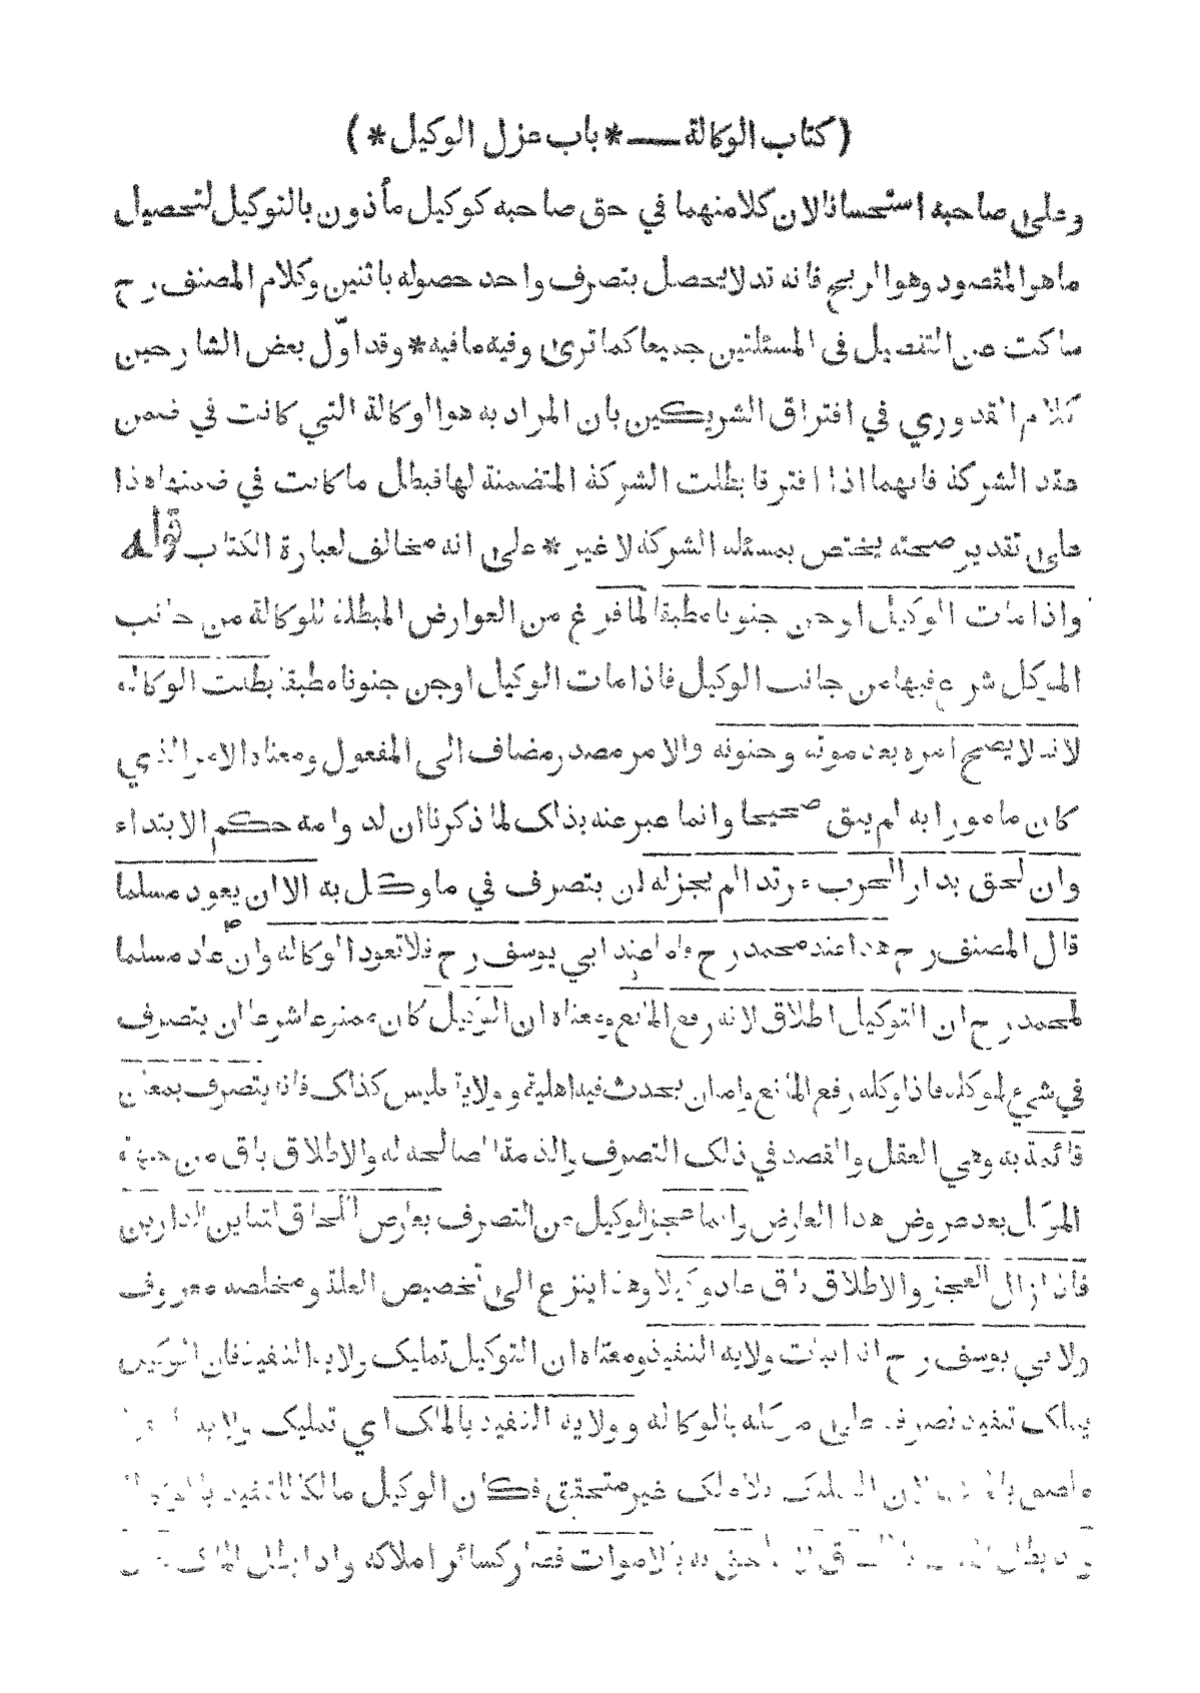 ( كتاب الوكالة ــ * باب عزل الوكيل * )
وعلى صاحبه استحسانا لان كلا منهما في حق صاحبه كوكيل مأذون بالتوكيل لتحصيل
ما هو المقصود وهو الربح فانه قد لا يحصل بتصرف واحد حصوله باثنين وكلام المصنف رح
ساكت عن التفصيل فى المسئلتين جميعا كما ترى وفيه ما فيه * وقد اوّل بعض الشارحين
كلام القدوري في افتراق الشريكين بان المراد به هو الوكالة التي كانت في ضمن
عقد الشركة فانهما اذا افترقا بطلت الشركة المتضمنة لها فبطل ما كانت في ضمنها هذا
على تقدير صحته يختص بمسئلة الشركة لا غير * على انه مخالف لعبارة الكتاب قوله
واذا مات الوكيل او جن جنونا مطبقا لما فرغ من العوارض المبطلة للوكالة من جانب
الموكل شرع فيها من جانب الوكيل فاذا مات الوكيل او جن جنونا مطبقا بطلت الوكالة
لانه لا يصح امره بعد موته وجنونه والامر مصدر مضاف الى المفعول ومعناه الامر الذي
كان مامورا به لم يبق صحيحا وانما عبر عنه بذلك لما ذكرنا ان لدوامه حكم الابتداء
وان لحق بدار الحرب مرتدا لم يجز له ان يتصرف في ما وكل به الا ان يعود مسلما
قال المصنف رح هذا عند محمد رح واما عند ابي يوسف رح فلا تعود الوكالة وان عاد مسلما
لمحمد رح ان التوكيل اطلاق لانه رفع المانع ومعناه ان الوكيل كان ممنوعا شرعا ان يتصرف
في شيء لموكله فاذا وكله رفع المانع واما ان يحدث فيه اهلية وولاية فليس كذلك فانه يتصرف بمعان
قائمة به وهي العقل والقصد في ذلك التصرف والذمة الصالحة له والاطلاق باق من جهة
الموكل بعد عروض هذا العارض وانما عجز الوكيل عن التصرف بعارض اللحاق لتباين الدارين
فاذا زال العجز والاطلاق باق عاد وكيلا وهذا ينزع الى تخصيص العلة ومخلصه معروف
ولابي يوسف رح انه اثبات ولاية التنفيذ ومعناه ان التوكيل تمليك ولاية التنفيذ فان الوكيل
يملك تنفيذ تصرفه على موكله بالوكالة وولاية التنفيذ بالملك اي تمليك ولاية
غير متحقق فكان الوكيل مالكا للتنفيذ
بالاموات فصار كسائر املاكه واذا بطل الملك